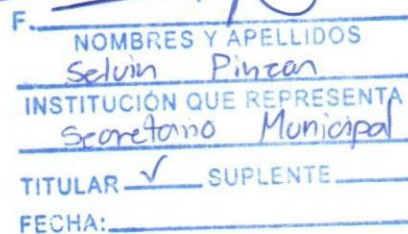 F.
NOMBRES Y APELLIDOS
Selvin Pinzon
INSTITUCIÓN QUE REPRESENTA
Secretario Municipal
TITULAR ✓ SUPLENTE
FECHA: